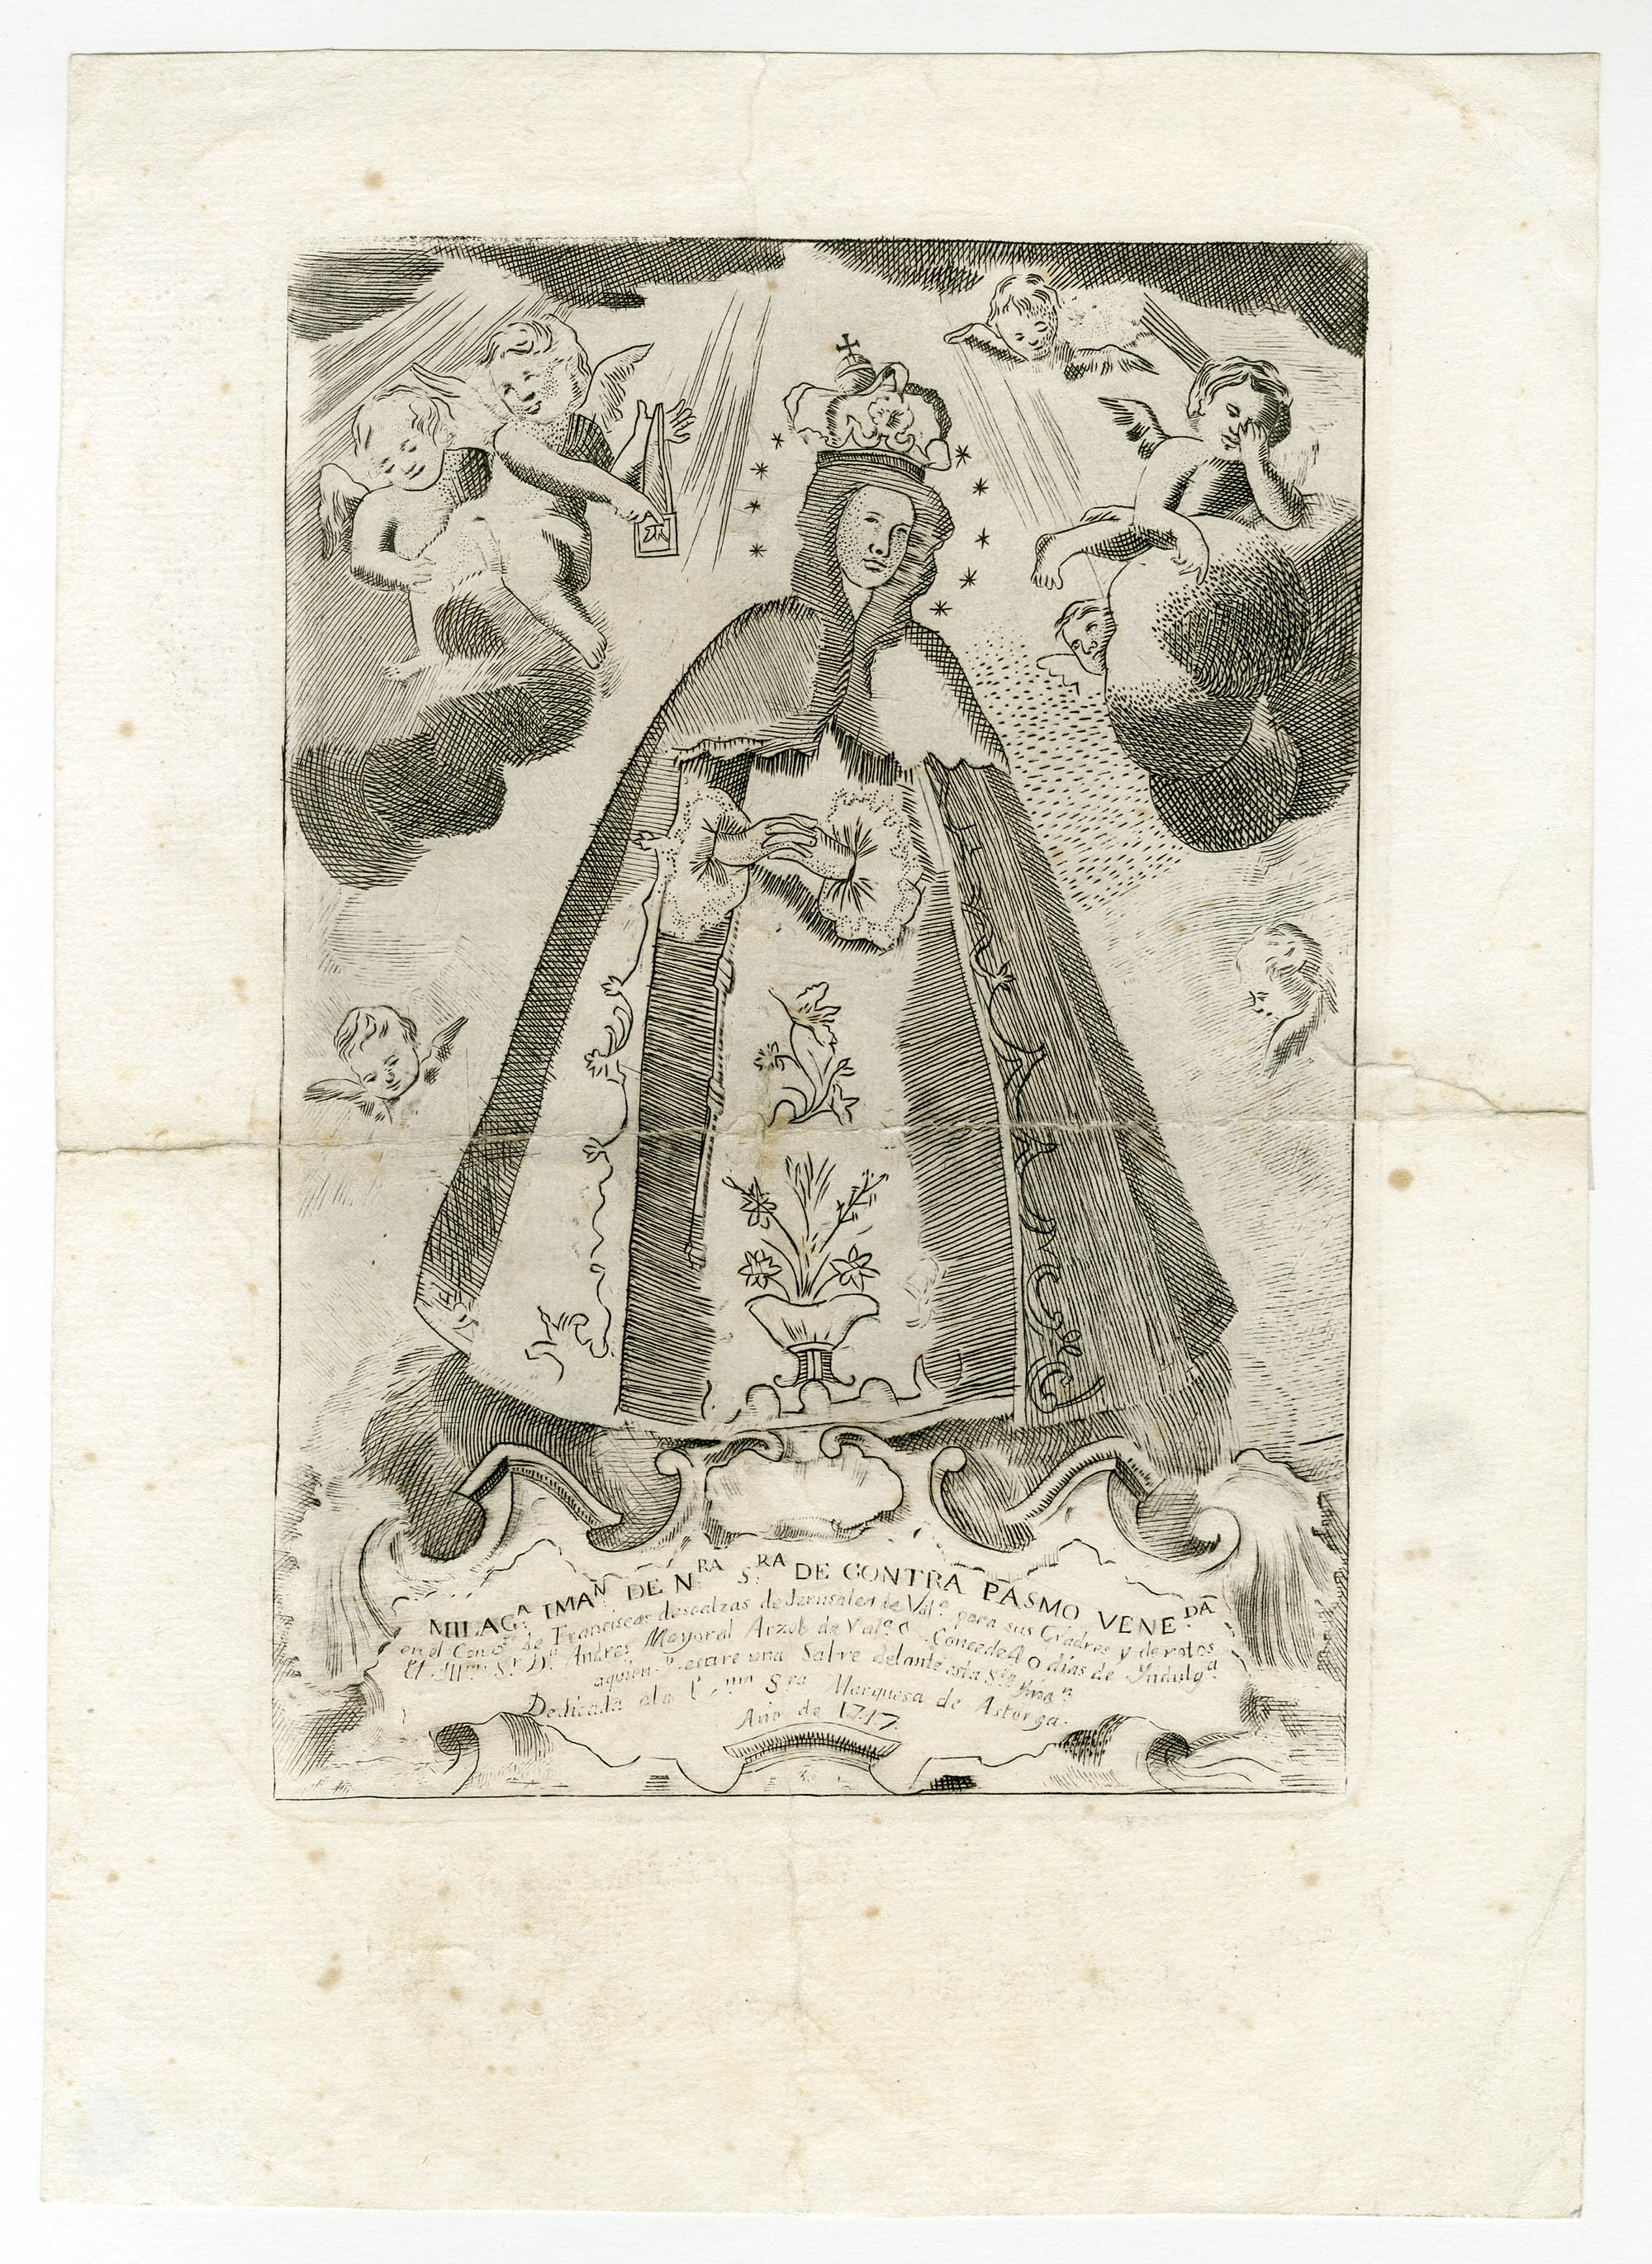 MILAG.ᴬ IMAᴺ DE Nᴿᴬ S.ᴿᴬ DE CONTRA PASMO VENE.ᴰᴬ
en el Conv.ᵗᵒ de Franciscas descalzas de Jerusalen de Val.ᵃ para sus Criadres y devotos
El Ill.ᵐᵒ S.ʳ D.ⁿ Andres Mayoral Arzob. de Val.ᵃ Concede 40 dias de Yndulgᵃ
aquien resare una Salve delante esta S.ᵗᵃ Ymaⁿ
Dedicada ala Sra Marquesa de Astorga.
Año de 1717.